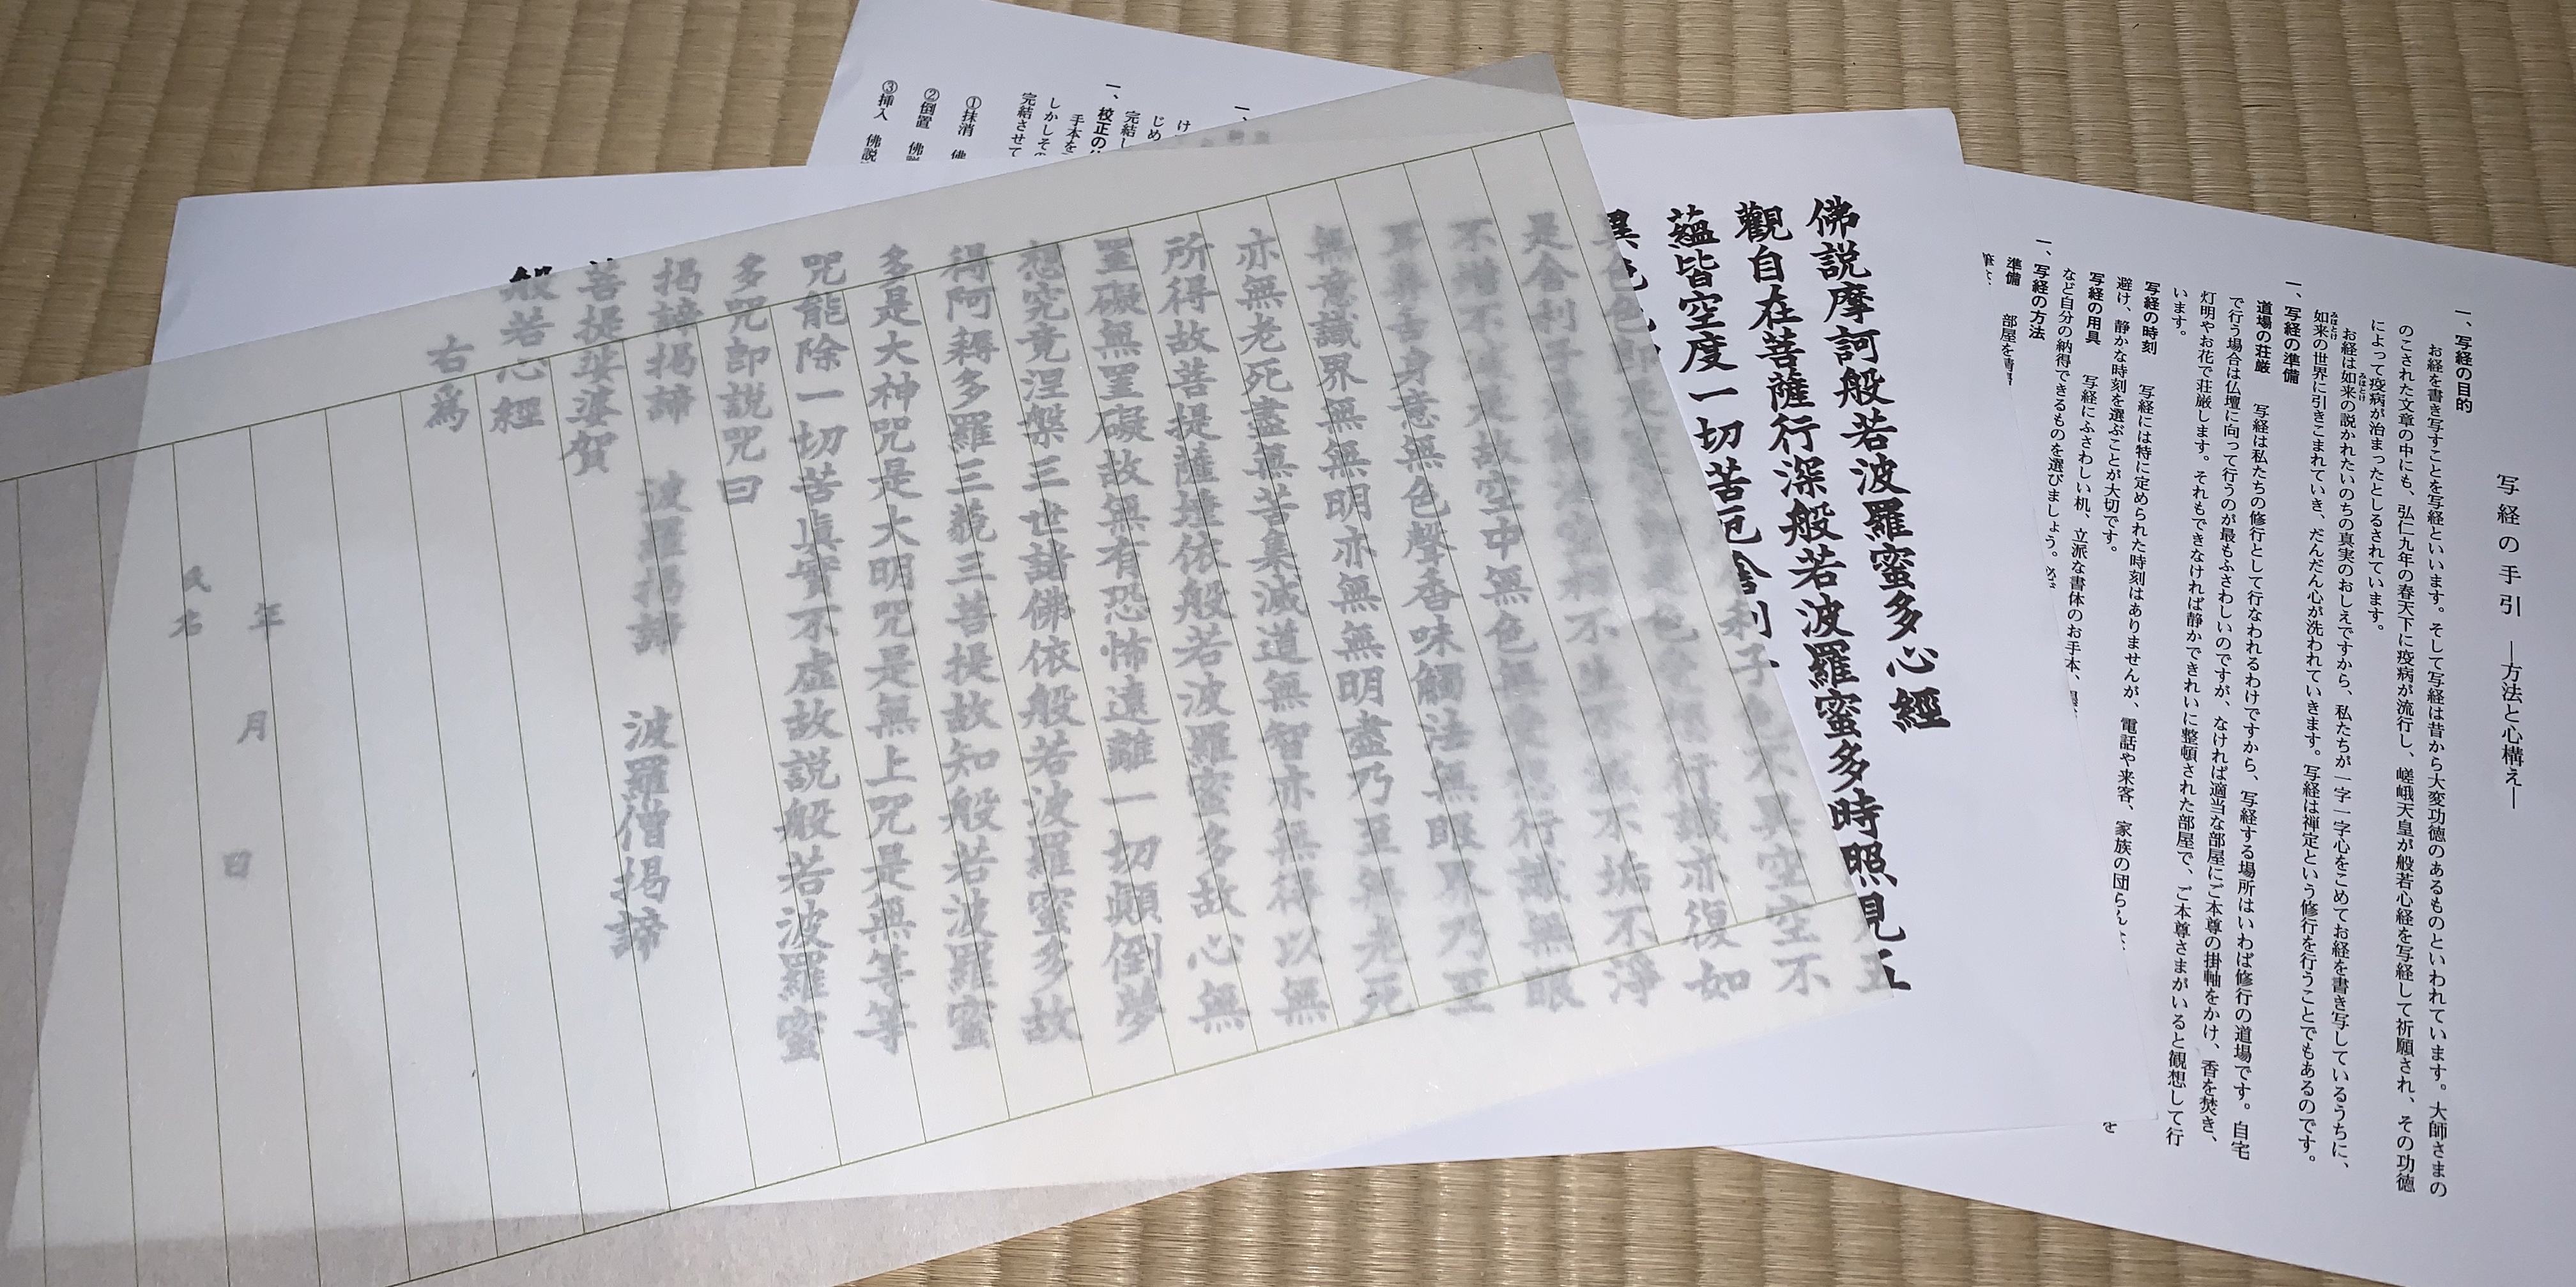 写経の手引　―方法と心構え―
一、写経の目的
お経を書き写すことを写経といいます。そして写経は昔から大変功徳のあるものといわれています。大師さまの
のこされた文章の中にも、弘仁九年の春天下に疫病が流行し、嵯峨天皇が般若心経を写経して祈願され、その功徳
によって疫病が治まったとしるされています。
お経は如来の説かれたいのちの真実のおしえですから、私たちが一字一字心をこめてお経を書き写しているうちに、
如来の世界に引きこまれていき、だんだん心が洗われていきます。写経は禅定という修行を行うことでもあるのです。
一、写経の準備
道場の荘厳　写経は私たちの修行として行なわれるわけですから、写経する場所はいわば修行の道場です。自宅
で行う場合は仏壇に向って行うのが最もふさわしいのですが、なければ適当な部屋にご本尊の掛軸をかけ、香を焚き、
灯明やお花で荘厳します。それもできなければ静かできれいに整頓された部屋で、ご本尊さまがいると観想して行
います。
写経の時刻　写経には特に定められた時刻はありませんが、電話や来客、家族の団らん
避け、静かな時刻を選ぶことが大切です。
写経の用具　写経にふさわしい机、立派な書体のお手本、
など自分の納得できるものを選びましょう。
一、写経の方法
準備　部屋を清
佛説摩訶般若波羅蜜多心經
觀自在菩薩行深般若波羅蜜多時照見五
蘊皆空度一切苦厄舍利子色不異空空不
異色色即行識亦復如
是舍利不生不不垢不淨
不増不是故空中無色無行識無眼
耳鼻舌身意無色聲香味觸法無眼界乃至
無意識界無無明亦無無明盡乃至無老死
亦無老死盡無苦集滅道無智亦無得以無
所得故菩提薩埵依般若波羅蜜多故心無
罣礙無罣礙故無有恐怖遠離一切顛倒夢
想究竟涅槃三世諸佛依般若波羅蜜多故
得阿耨多羅三藐三菩提故知般若波羅蜜
多是大神咒是大明咒是無上咒是無等等
咒能除一切苦真實不虚故説般若波羅蜜
多咒即説咒曰
揭諦揭諦　波羅揭諦　波羅僧揭諦
菩提娑婆賀
般若心經
右爲
年　月　日
氏名
一、校正の
手本を
しかしその
完結させて
①抹消
②倒置　佛説
③挿入　佛説